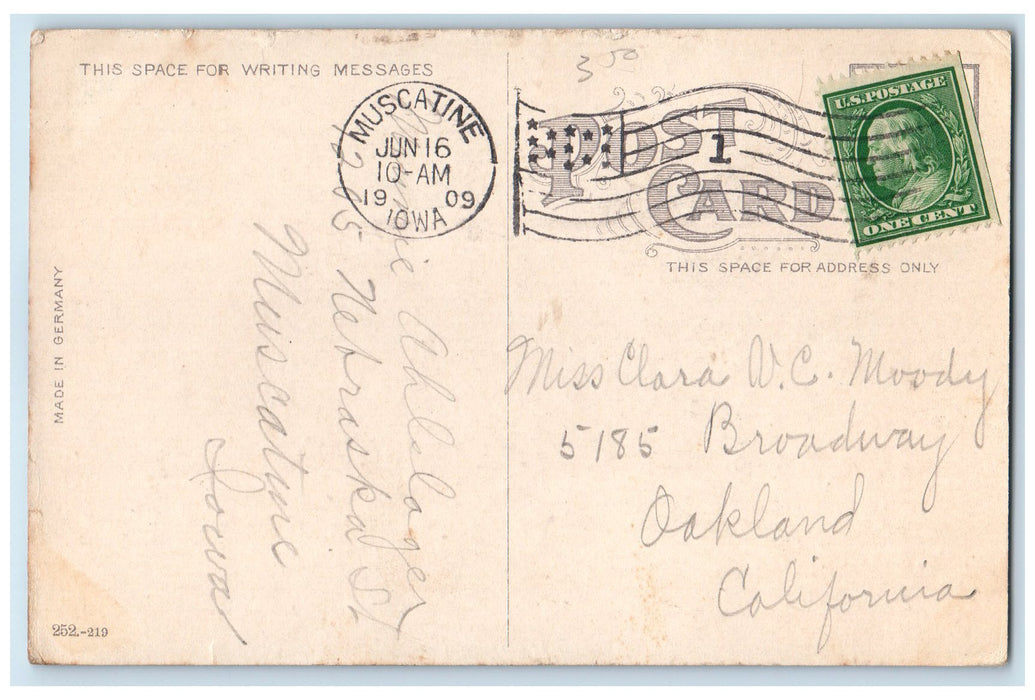 3 00
THIS SPACE FOR WRITING MESSAGES
MUSCATINE
JUN 16
10-AM
19 09
IOWA
1
POST
CARD
U.S. POSTAGE
ONE CENT
THIS SPACE FOR ADDRESS ONLY
MADE IN GERMANY
Nebraska St
Muscatine
Iowa
Miss Clara W. C. Moody
5185 Broadway
Oakland
California
252.-219